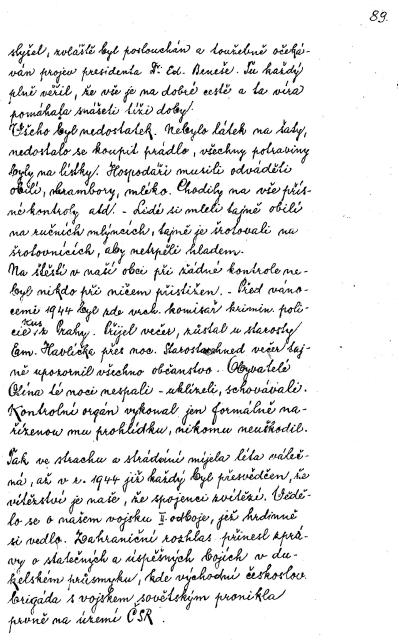 89.
slyšel, zvláště byl poslouchán a toužebně očeká-
ván projev presidenta Dr. Ed. Beneše. Tu každý
plně věřil, že vše je na dobré cestě a ta víra
pomáhala snášeti tíži doby.
Všeho byl nedostatek. Nebylo látek na šaty,
nedostalo se koupit prádlo, všechny potraviny
byly na lístky. Hospodáři musili odváděti
obilí, brambory, mléko. Chodily na vše přís-
né kontroly atd. - Lidé si mleli tajně obilí
na ručních mlýncích, tajně je šrotovali na
šrotovnících, aby netrpěli hladem.
Na štěstí v naší obci při žádné kontrole ne-
byl nikdo při ničem přistižen. - Před váno-
cemi 1944 byl zde vrch. komisař krimin. poli-
cie Kus z Prahy. Přijel večer, zůstal u starosty
Em. Havlíčka přes noc. Starosta hned večer taj-
ně upozornil všechno občanstvo. Obyvatelé
té noci nespali - uklízeli, schovávali.
Kontrolní orgán vykonal jen formálně na-
řízenou mu prohlídku, nikomu neuškodil.
Tak ve strachu a strádání míjela léta váleč-
ná, až v r. 1944 již každý byl přesvědčen, že
vítězství je naše, že spojenci zvítězí. Vědě-
lo se o našem vojsku II. odboje, jež hrdinně
si vedlo. Zahraniční rozhlas přinesl zprá-
vy o statečných a úspěšných bojích v du-
kelském průsmyku, kde východní českoslov.
brigáda s vojskem sovětským pronikla
prvně na území ČSR.